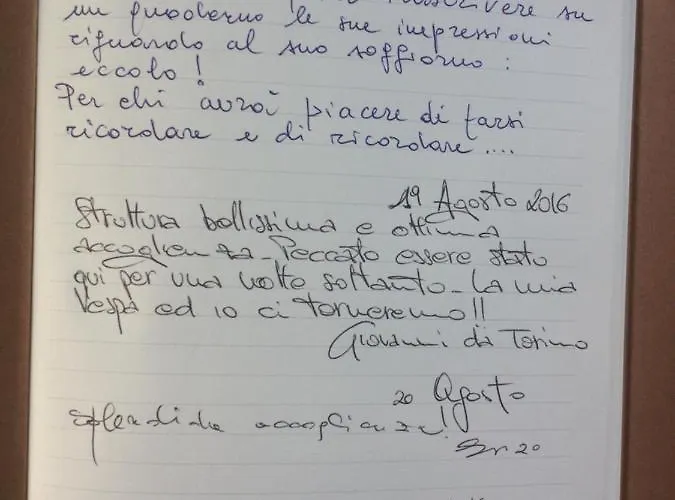 un quaderno le sue impressioni
riguardo al suo soggiorno :
eccolo !
Per chi avrà piacere di farsi
ricordare e di ricordare ....
19 Agosto 2016
Struttura bellissima e ottima
accoglienza. Peccato essere stato
qui per una volta soltanto. La mia
Vespa ed io ci torneremo!!
Giovanni da Torino
20 Agosto
splendida accoglienza!